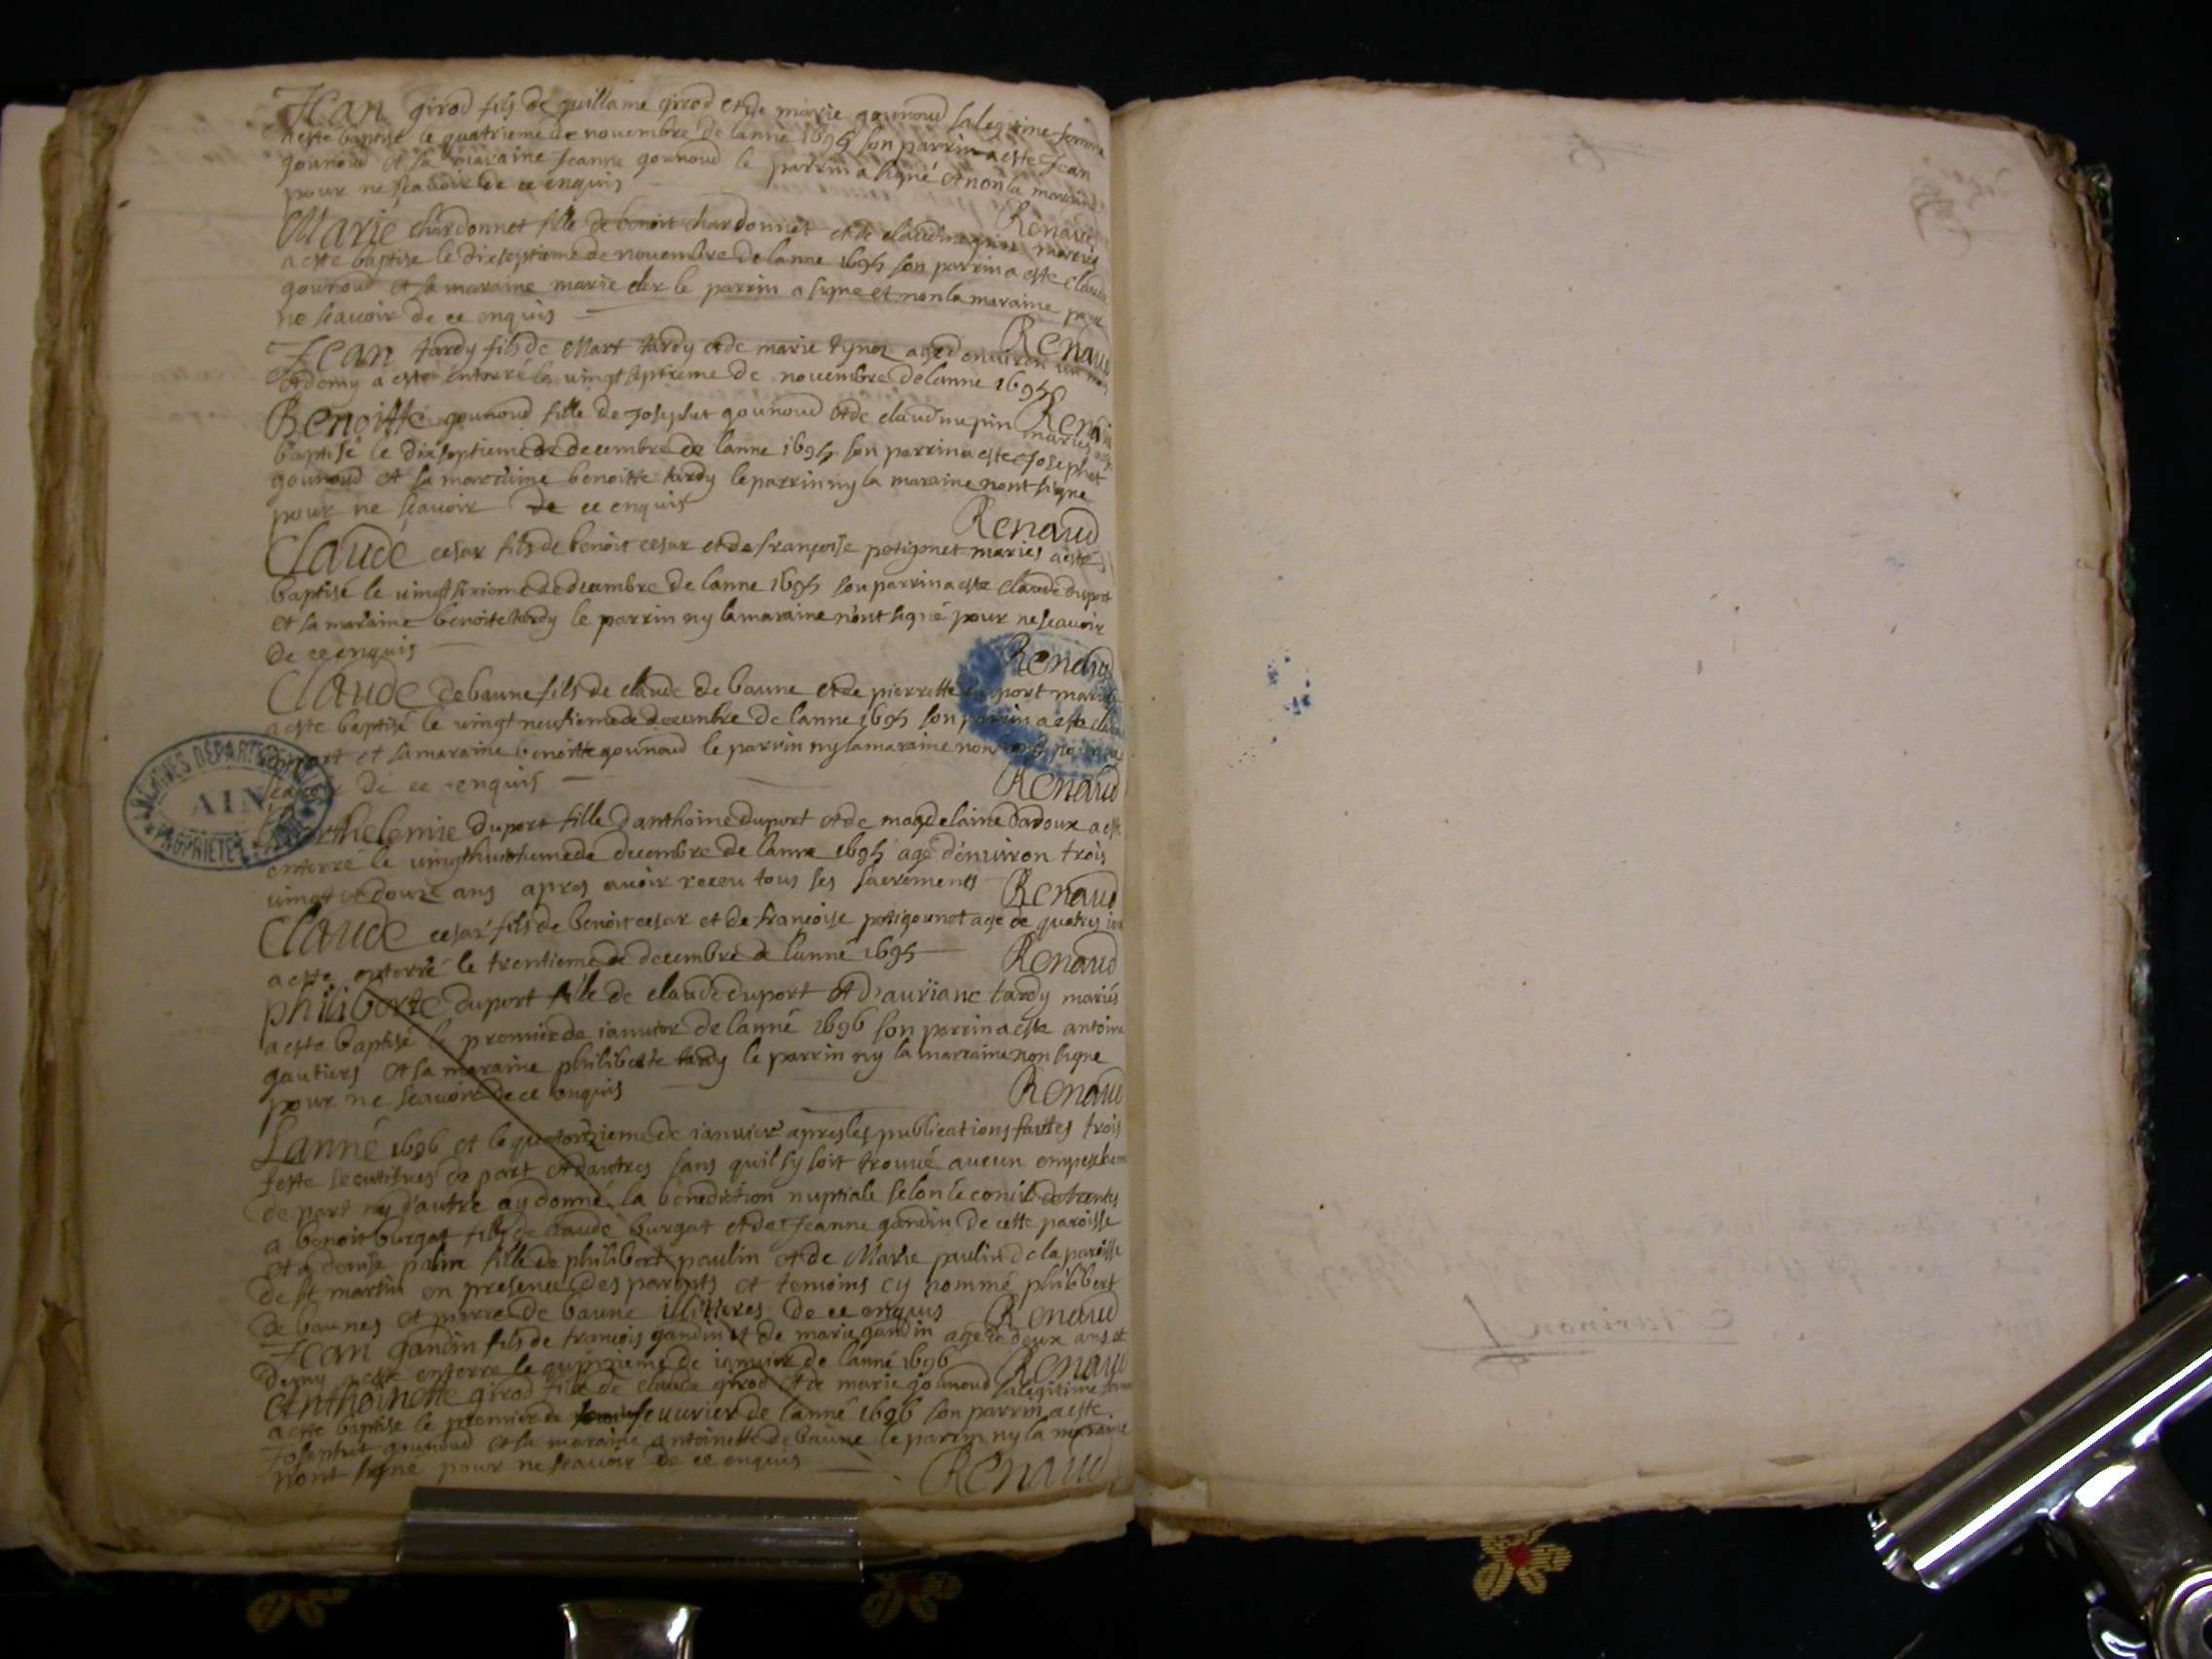 Jean girod fils de guillame girod et de marie gounoud sa legitime femme
a este baptisé le quatrieme de novembre de lanne 1695 son parrin a este Jean
gounoud et sa maraine Jeanne gounoud le parrin a signé et non la maraine
pour ne scavoir de ce enquis
Renaud
Marie chardonnet fille de benoit chardonnet et de claudine mariés
a este baptise le dixseptieme de novembre de lanne 1695 son parrin a este claude
gounoud et sa maraine marie cler le parrin a signe et non la maraine pour
ne scavoir de ce enquis
Renaud
Jean tardy fils de Mart tardy et de marie aged environ un mois
et demy a este enterré le vingt septieme de novembre de lanne 1695
Renaud
Benoitte gounoud fille de Josephet gounoud et de claudine pin mariés a este
baptisé le dixseptieme de decembre de lanne 1695 son parrin a este Josephet
gounoud et sa maraine benoitte tardy le parrin ny la maraine nont signe
pour ne scavoir de ce enquis
Renaud
Claude cesar fils de benoit cesar et de françoise petigonet mariés a esté
baptisé le vingt sixieme de decembre de lanne 1695 son parrin a este claude duport
et sa maraine benoite tardy le parrin ny la maraine n'ont signé pour ne scavoir
de ce enquis
Renaud
Claude debaune fils de claude de baune et de pierrette duport mariés
a este baptisé le vingt neufieme de decembre de lanne 1695 son parrin a este claude
duport et sa maraine benoitte gounoud le parrin ny la maraine nont signé pour ne
scavoir de ce enquis
Renaud
ARCHIVES DÉPARTEMENTALES
AIN
PROPRIÉTÉ PUBLIQUE
Barthelemie duport fille d'anthoine duport et de magdelaine dadoux a este
enterré le vingthuitieme de decembre de lanne 1695 agé d'environ trois
vingt et douze ans apres avoir receu tous ses sacrements
Renaud
Claude cesar fils de benoit cesar et de françoise petigounot age de quatres iour
a este enterré le trentieme de decembre de lanné 1695
Renaud
philiberte duport fille de claude duport et d'auriane tardy mariés
a este baptisé le premier de ianvier de lanné 1696 son parrin a este antoine
gautiers et sa maraine philiberte tardy le parrin ny la marraine non signe
pour ne scavoir de ce enquis
Renaud
Lanné 1696 et le quatorzieme de ianvier apres les publications faites trois
feste secutifues de part et dautres sans quil sy soit trouvé aucun empeschement
de part ny d'autre ay donné la benediction nuptiale selon le concil de trentes
a benoit burgat fils de claude burgat et de Jeanne gandin de cette paroisse
et a denise palin fille de philibert paulin et de Marie paulin de la paroisse
de st martin en presence des parents et temoins cy nommé philibert
de baunes et pierre de baune illitteres de ce enquis
Renaud
Jean gandin fils de françois gandin et de marie gandin age de deux ans et
demy a este enterre le quinzieme de ianvier de lanné 1696
Renaud
Anthoinette girod fille de claude girod et de marie gounoud sa legitime femme
a este baptise le premier de feuvrier de l'anné 1696 son parrin a este
Josephet gounoud et sa maraine antoinette de baune le parrin ny la maraine
nont signé pour ne scavoir de ce enquis
Renaud